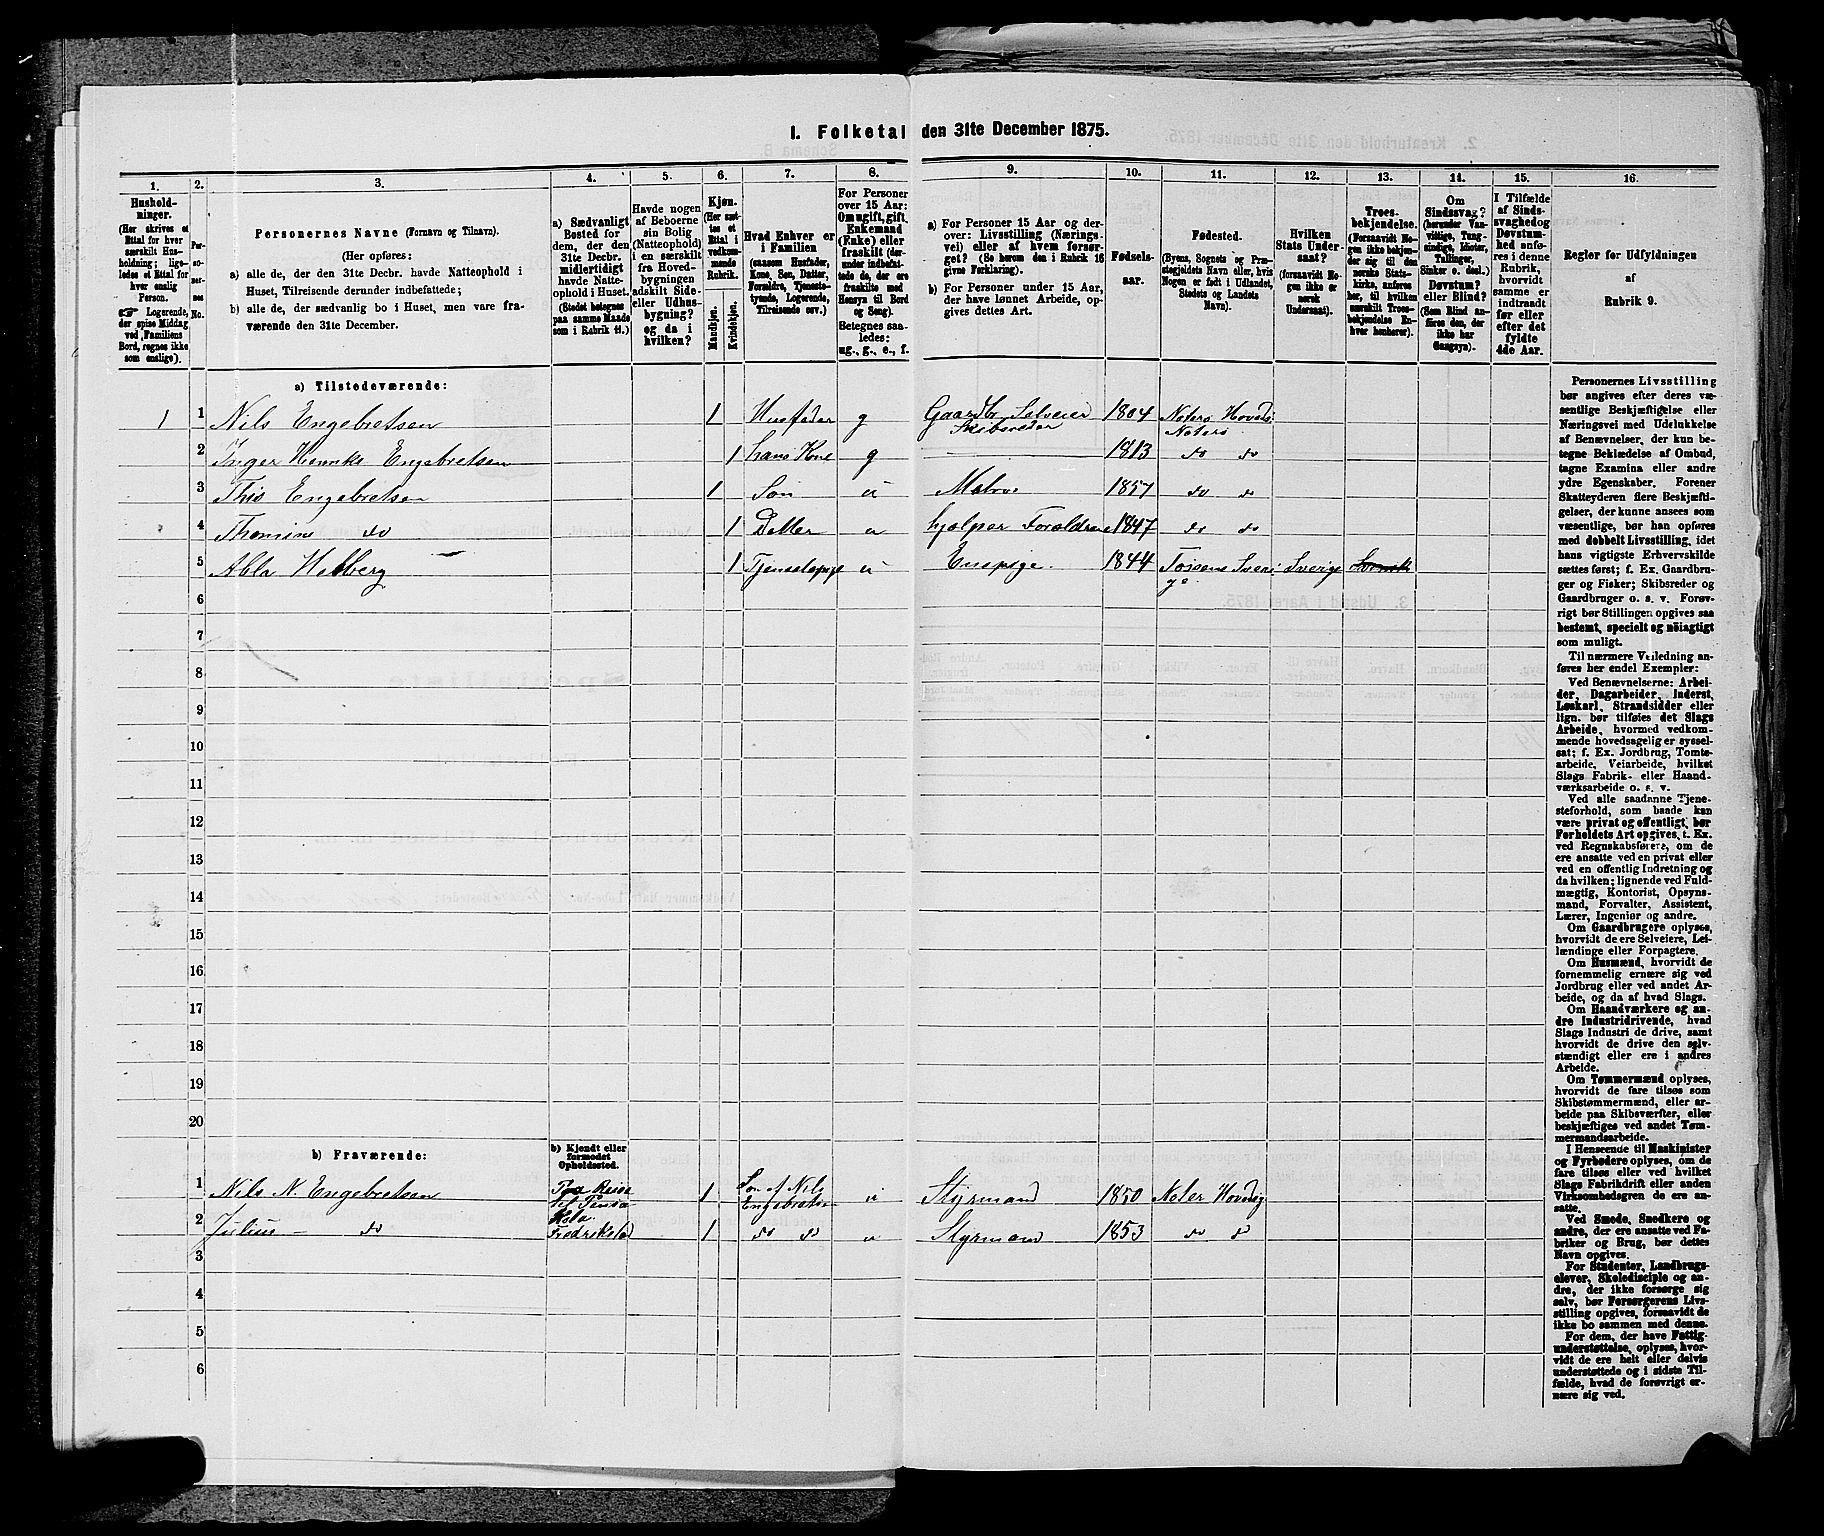 1. Folketal den 31te December 1875.
1. 2. 3. 4. 5. 6. 7. 8. 9. 10. 11. 12. 13. 14. 15. 16.
Hushold-
ninger.
(Her skrives et
Ettal for hver
særskilt Hus-
holdning; lige-
ledes et Ettal for
hver enslig
Person.
☞ Logerende,
der spise Middag
ved Familiens
Bord, regnes ikke
som enslige).
Per-
so-
ner-
nes
No.
Personernes Navne (Fornavn og Tilnavn).
(Her opføres:
a) alle de, der den 31te Decbr. havde Natteophold i
Huset, Tilreisende derunder indbefattede;
b) alle de, der sædvanlig bo i Huset, men vare fra-
værende den 31te December.
a) Sædvanligt
Bosted for
dem, der den
31te Decbr.
midlertidigt
havde Natte-
ophold i Huset.
(Stedet betegnes
paa samme Maade
som i Rubrik 11.)
Havde nogen
af Beboerne
sin Bolig
(Natteophold)
i en særskilt
fra Hoved-
bygningen
adskilt Side-
eller Udhus-
bygning?
og da i
hvilken?
Kjøn.
(Her sæt-
tes et
Ettal i
vedkom-
mende
Rubrik.
Mandkjøn.
Kvindekjøn.
Hvad Enhver er
i Familien
(saasom Husfader,
Kone, Søn, Datter,
Forældre, Tjeneste-
tyende, Logerende,
Tilreisende osv.)
For Personer
over 15 Aar:
Om ugift, gift,
Enkemand
(Enke) eller
fraskilt (der-
under indbefat-
tede de, der ere
fraskilte med
Hensyn til Bord
og Seng).
Betegnes saa-
ledes:
ug., g., e., f.
a) For Personer 15 Aar og der-
over: Livsstilling (Nærings-
vei) eller af hvem forsør-
get? (Se herom den i Rubrik 16
givne Forklaring).
b) For Personer under 15 Aar,
der have lønnet Arbeide, op-
gives dettes Art.
Fødsels-
aar.
Fødested.
(Byens, Sognets og Præ-
stegjeldets Navn eller, hvis
Nogen er født i Udlandet,
Stedets og Landets
Navn).
Hvilken
Stats Under-
saat?
(forsaavidt No-
gen ikke er
norsk
Undersaat).
Troes-
bekjendelse.
(Forsaavidt No-
gen ikke bekjen-
der sig til den
norske Stats-
kirke, anføres
her, til hvilken
særskilt Troes-
bekjendelse En-
hver henhører).
Om
Sindssvag?
(herunder Van-
vittige, Tung-
sindige, Idioter,
Tullinger,
Sinker o. desl.)
Døvstum?
eller Blind?
(Som Blind an-
føres den, der
ikke har
Gangsyn).
I Tilfælde
af Sinds-
svaghed og
Døvstum-
hed anfø-
res i denne
Rubrik,
hvorvidt
samme er
indtraadt
før eller
efter det
fyldte
4de Aar.
Regler for Udfyldningen
af
Rubrik 9.
a) Tilstedeværende:
1 1 Nils Engebretsen 1 Husfader g Gaardbr Selveier Skibsreder 1804 Noterø Hovedsø Noterø
2 Inger Engebretsen 1 hans Kone g 1813 do do
3 Engebretsen 1 Søn u 1857 do do
4 do 1 Datter u hjælper Forældrene 1847 do do
5 1 Tjenestepige u 1844 Sverige Sverige
6
7
8
9
10
11
12
13
14
15
16
17
18
19
20
b) Fraværende:
b) Kjendt eller
formodet
Opholdssted.
1 Nils N. Engebretsen Paa Reise til 1 Søn af Nils Engebretsen u Styrmand 1850
2 Julius do Fredrikstad 1 do do u Styrmand 1853 do do
3
4
5
6
Personernes Livsstilling
bør angives efter deres væ-
sentlige Beskjæftigelse eller
Næringsvei med Udelukkelse
af Benævnelser, der kun be-
tegne Beklædelse af Ombud,
tagne Examina eller andre
ydre Egenskaber. Forener
Skatteyderen flere Beskjæfti-
gelser, der kunne ansees som
væsentlige, bør han opføres
med dobbelt Livsstilling, idet
hans vigtigste Erhvervskilde
sættes først; f. Ex. Gaardbru-
ger og Fisker; Skibsreder og
Gaardbruger o. s. v. Forøv-
rigt bør Stillingen opgives saa
bestemt, specielt og nøiagtigt
som muligt.
Til nærmere Veiledning an-
føres her endel Exempler:
Ved Benævnelserne: Arbei-
der, Dagarbeider, Inderst,
Løskarl, Strandsidder eller
lign. bør tilføies det Slags
Arbeide, hvormed vedkom-
mende hovedsagelig er syssel-
sat; f. Ex. Jordbrug, Tomte-
arbeide, Veiarbeide, hvilket
Slags Fabrik- eller Haand-
værksarbeide o. s. v.
Ved alle saadanne Tjene-
steforhold, som baade kan
være privat og offentligt, bør
Forholdets Art opgives, t. Ex.
ved Regnskabsførere, om de
ere ansatte ved en privat eller
ved en offentlig Indretning og
da hvilken; lignende ved Fuld-
mægtig, Kontorist, Opsyns-
mand, Forvalter, Assistent,
Lærer, Ingeniør og andre.
Om Gaardbrugere oplyses,
hvorvidt de ere Selveiere, Lei-
lændinge eller Forpagtere.
Om Husmænd, hvorvidt de
fornemmelig ernære sig ved
Jordbrug eller ved andet Ar-
beide, og da af hvad Slags.
Om Haandværkere og an-
dre Industridrivende, hvad
Slags Industri de drive, samt
hvorvidt de drive den selv-
stændigt eller ere i andres
Arbeide.
Om Tømmermænd oplyses,
hvorvidt de fare tilsøs som
Skibstømmermænd, eller ar-
beide paa Skibsværfter, eller
beskjæftiges ved andet Tøm-
mermandsarbeide.
I Henseende til Maskinister
og Fyrbødere oplyses, om de
fare tilsøs eller ved hvilket
Slags Fabrikdrift eller anden
Virksomhedsgren de ere an-
satte.
Ved Smede, Snedkere og
andre, der ere ansatte ved Fa-
briker og Brug, bør dettes
Navn opgives.
For Studenter, Landbrugs-
elever, Skoledisciple og an-
dre, der ikke forsørge sig
selv, bør Forsørgerens Livs-
stilling opgives, forsaavidt de
ikke bo sammen med denne.
For dem, der have Fattig-
understøttelse, oplyses, hvor-
vidt de ere helt eller delvis
understøttede og i sidste Til-
fælde, hvad de forøvrigt er-
nære sig ved.